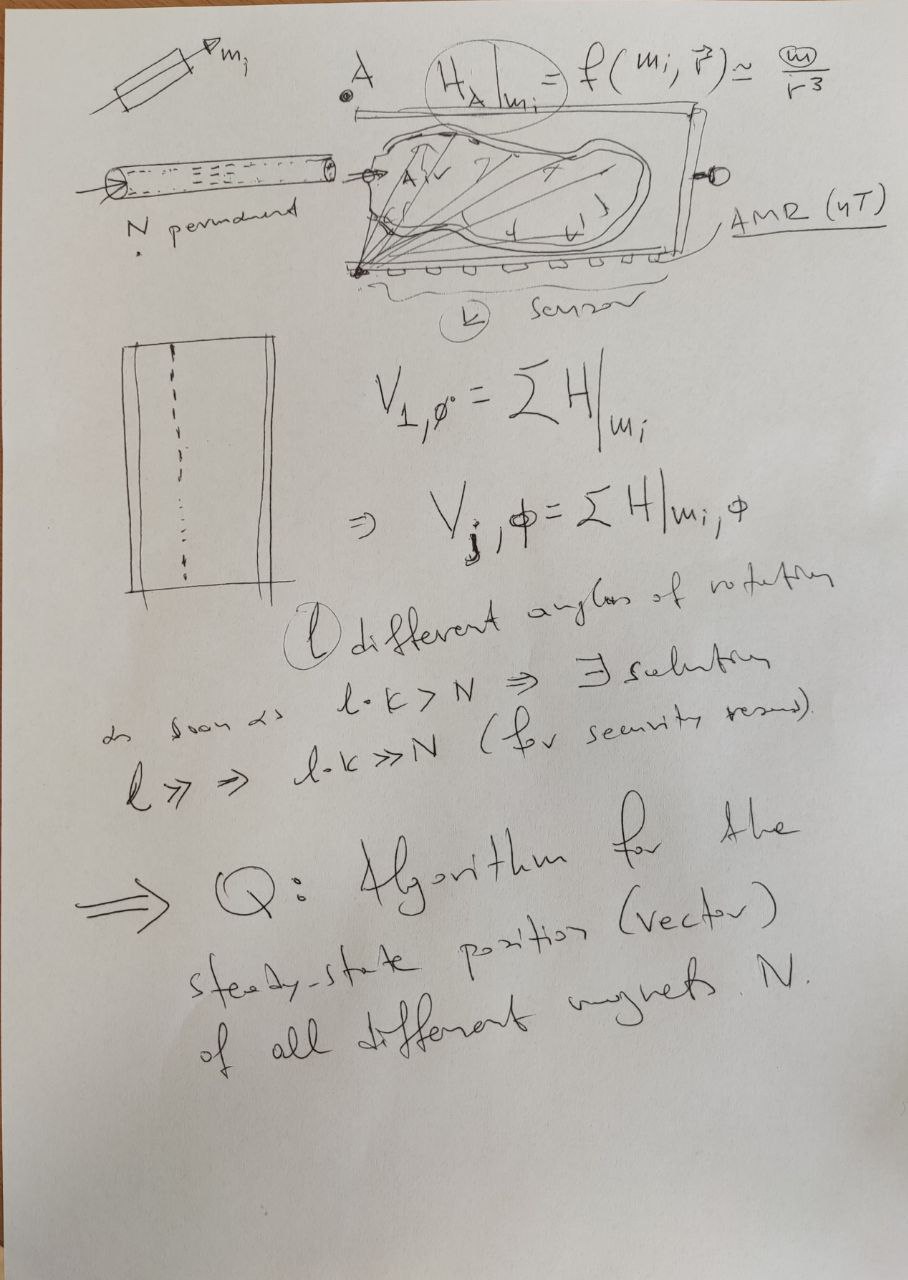 m_i
A
H_A|_{m_i} = f(m_i, \vec{r}) ≃ m/r^3
N permanent
AMR (nT)
k sensor
V_{1,φ} = Σ H|_{m_i}
⇒ V_{j,φ} = Σ H|_{m_i,φ}
l different angles of rotation
as soon as l·k > N ⇒ ∃ solution
l ≫ ⇒ l·k ≫ N (for security
⇒ Q: Algorithm for the
steady-state position (vector)
of all different magnets N.